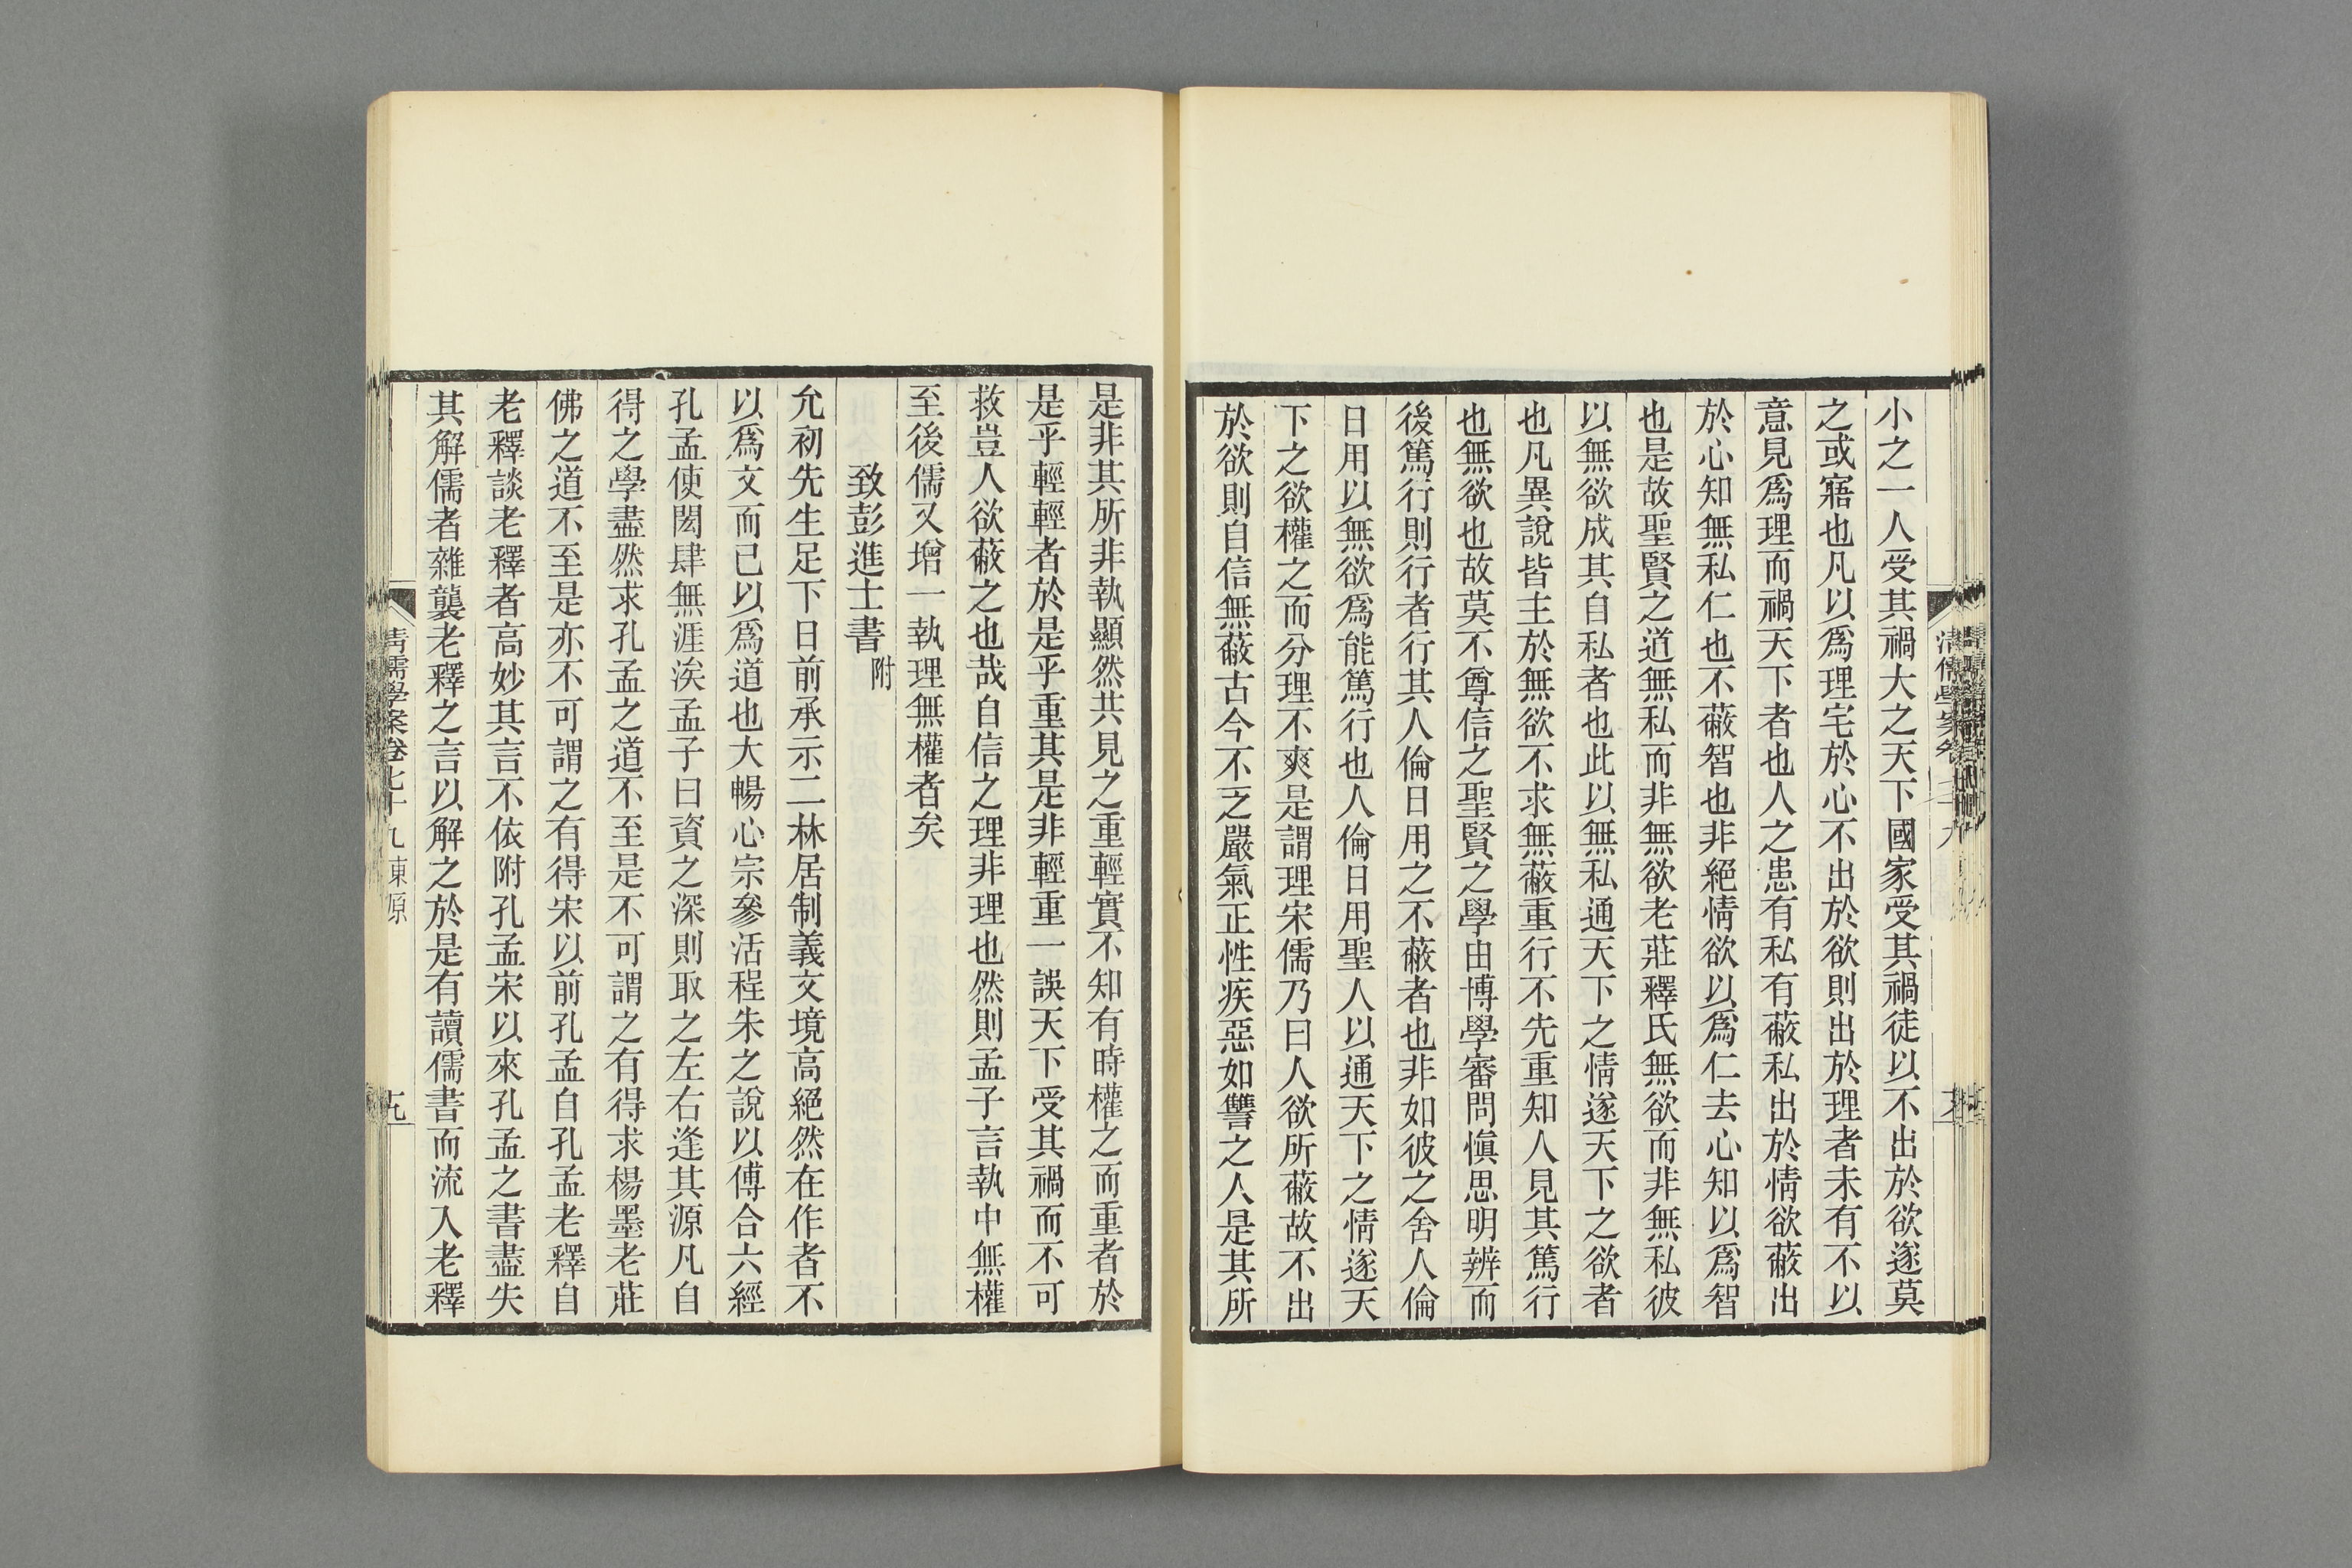 小之一人受其禍大之天下國家受其禍徒以不出於欲遂莫
之或寤也凡以爲理宅於心不出於欲則出於理者未有不以
意見爲理而禍天下者也人之患有私有蔽私出於情欲蔽出
於心知無私仁也不蔽智也非絕情欲以爲仁去心知以爲智
也是故聖賢之道無私而非無欲老莊釋氏無欲而非無私彼
以無欲成其自私者也此以無私通天下之情遂天下之欲者
也凡異說皆主於無欲不求無蔽重行不先重知人見其篤行
也無欲也故莫不尊信之聖賢之學由博學審問愼思明辨而
後篤行則行者行其人倫日用之不蔽者也非如彼之舍人倫
日用以無欲爲能篤行也人倫日用聖人以通天下之情遂天
下之欲權之而分理不爽是謂理宋儒乃曰人欲所蔽故不出
於欲則自信無蔽古今不乏嚴氣正性疾惡如讐之人是其所
是非其所非執顯然共見之重輕實不知有時權之而重者於
是乎輕輕者於是乎重其是非輕重一誤天下受其禍而不可
救豈人欲蔽之也哉自信之理非理也然則孟子言執中無權
至後儒又增一執理無權者矣
致彭進士書附
允初先生足下日前承示二林居制義文境高絕然在作者不
以爲文而已以爲道也大暢心宗參活程朱之說以傅合六經
孔孟使閎肆無涯涘孟子曰資之深則取之左右逢其源凡自
得之學盡然求孔孟之道不至是不可謂之有得求楊墨老莊
佛之道不至是亦不可謂之有得宋以前孔孟自孔孟老釋自
老釋談老釋者高妙其言不依附孔孟宋以來孔孟之書盡失
其解儒者雜襲老釋之言以解之於是有讀儒書而流入老釋
清儒學案卷七十九東原